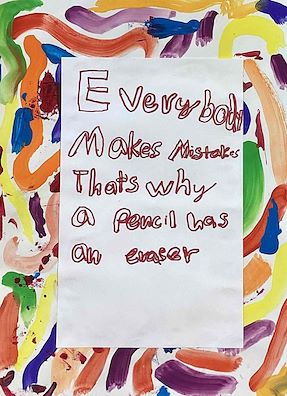 Everybody
Makes Mistakes
Thats why
a Pencil has
an eraser